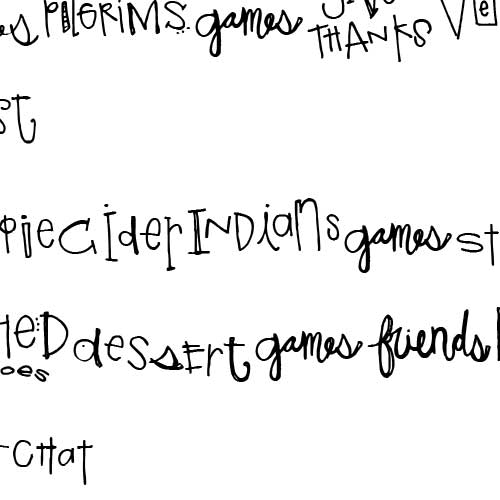 PILGRIMS games THANKS
st
Pie CiderINDIans games st
dessert games friends
oes
chat